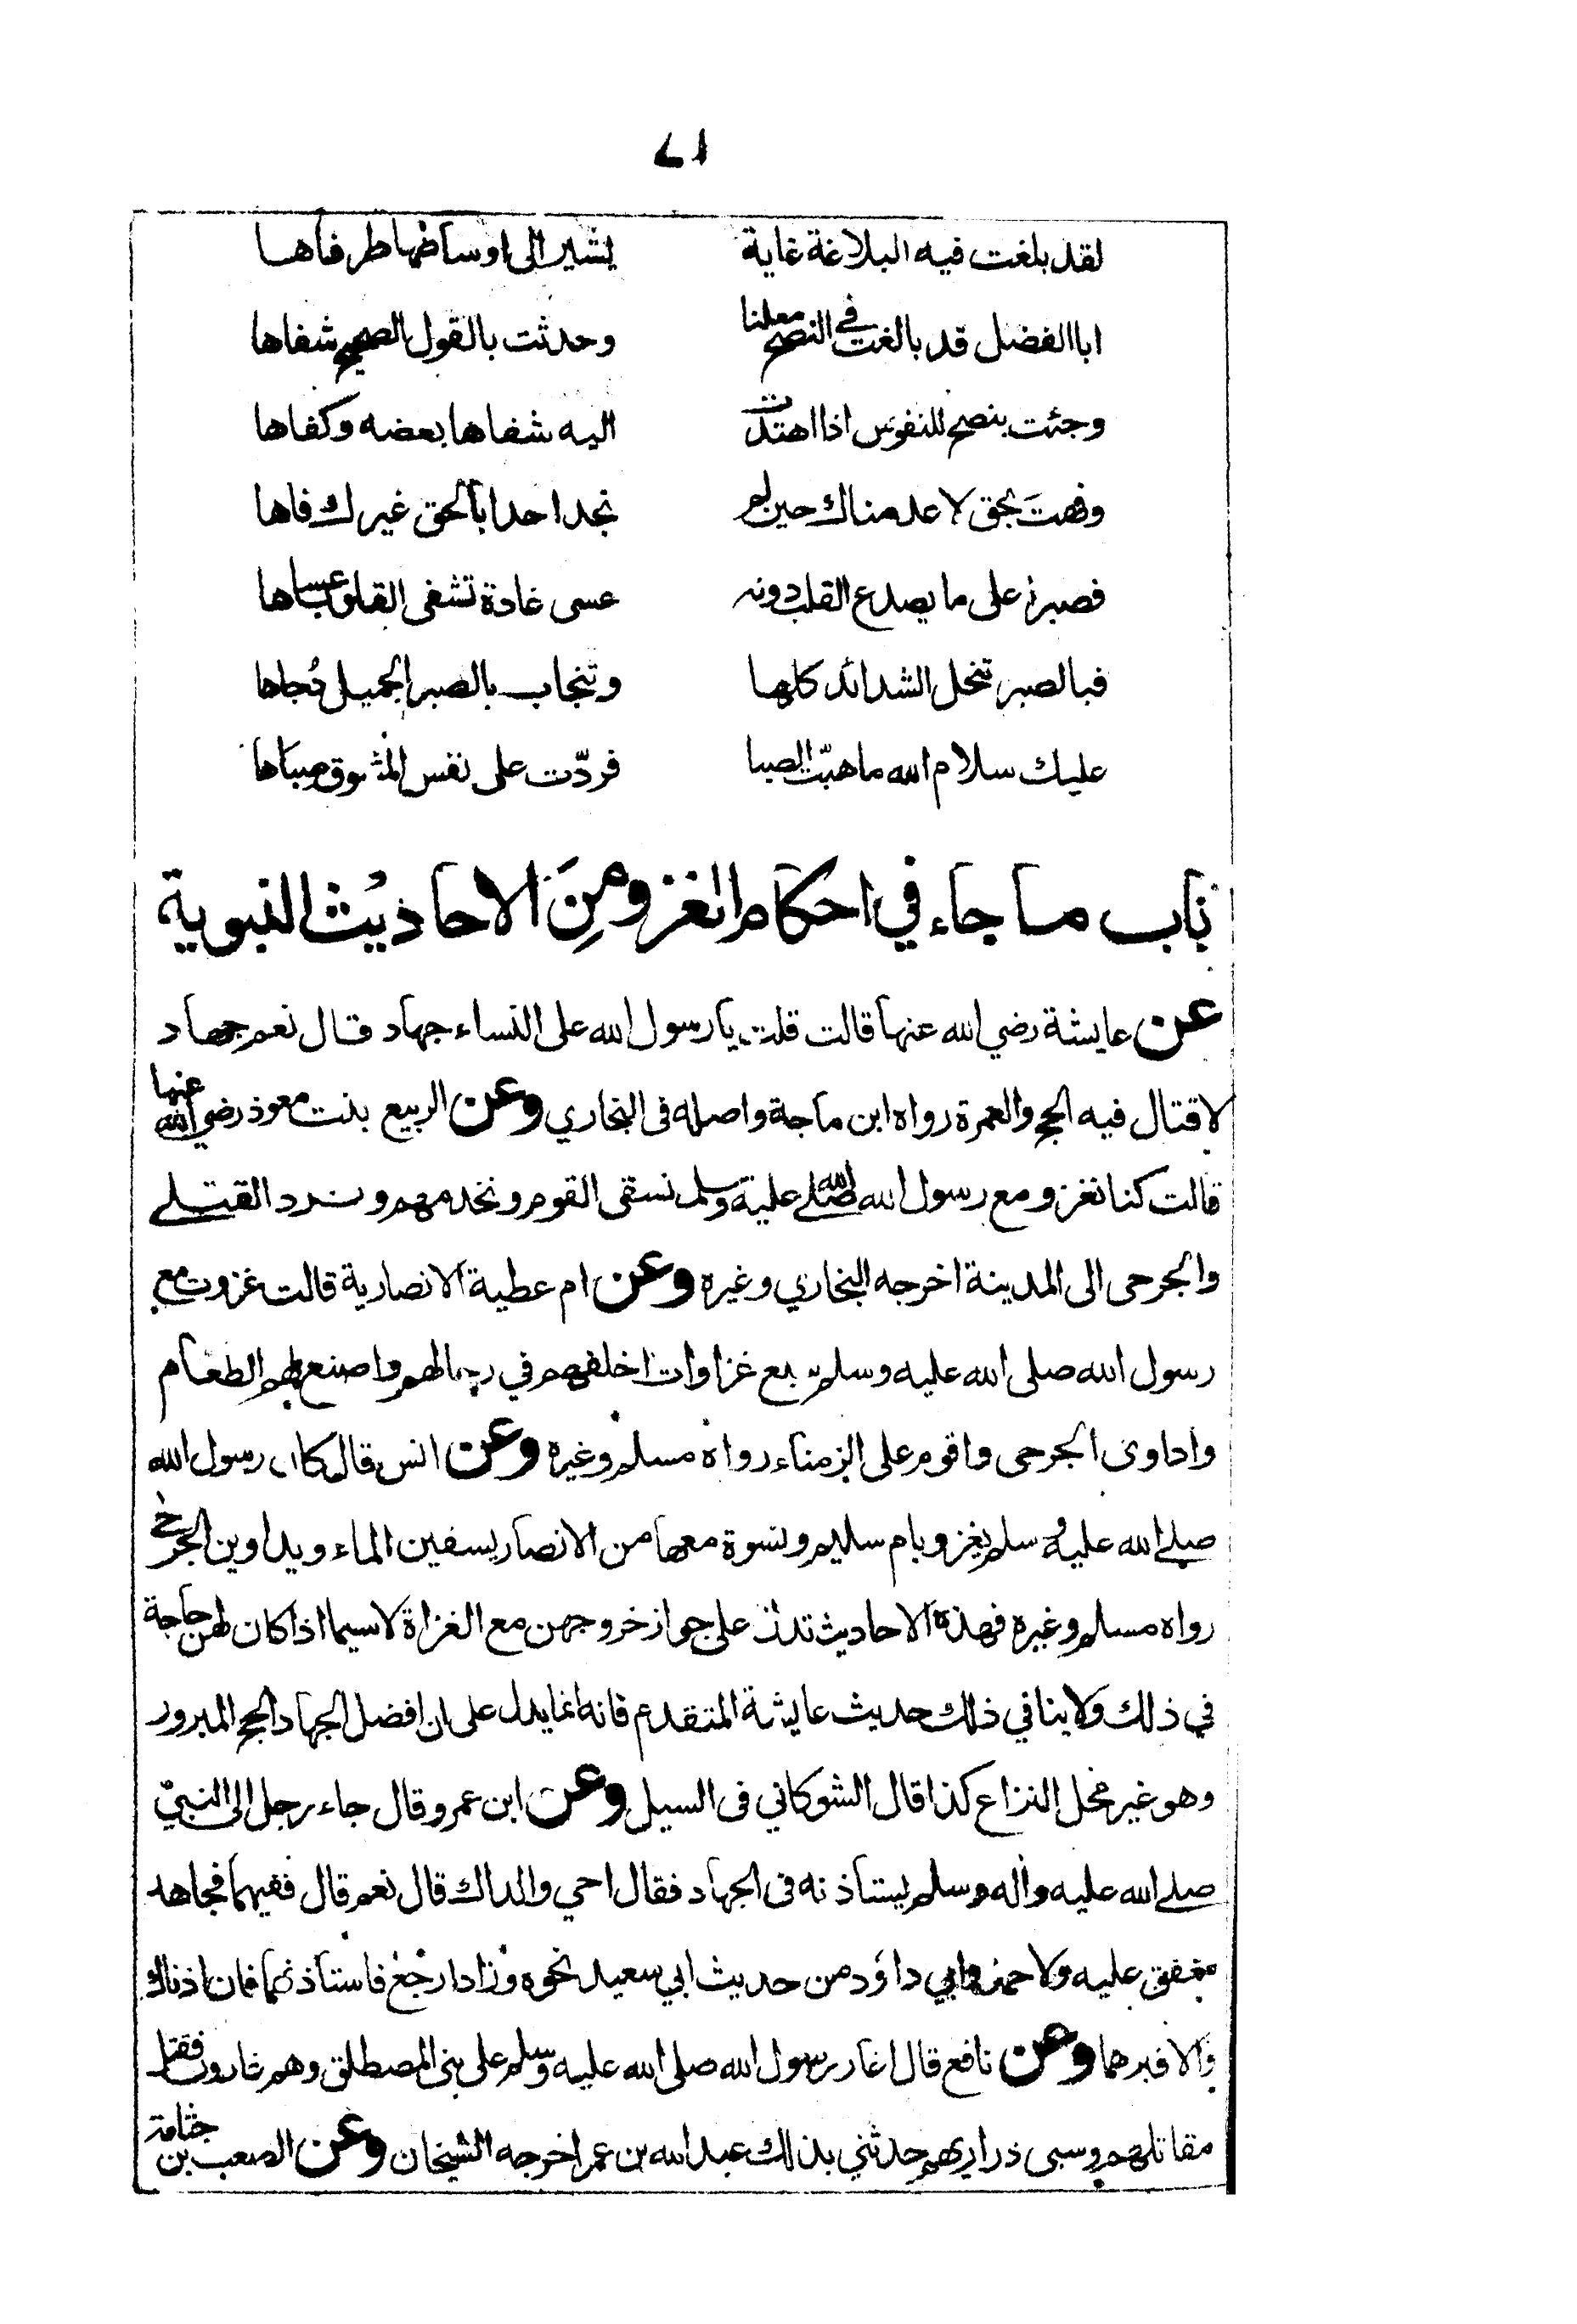 ٧١
لقد بلغت فيه البلاغة غاية يشير الى اوساطها طرفاها
ابا الفضل قد بالغت في النصح معلنا وحدثت بالقول الصحيح شفاها
وجئت بنصح للنفوس اذا اهتدت اليه شفاها بعضه وكفاها
وفهت بحق لا عدمناك حين لم نجد احدا بالحق غيرك فاها
فصبرا على ما يصدع القلب دونه عسى غادة تشفى القلوب عساها
فبالصبر تنحل الشدائد كلها وتنجاب بالصبر الجميل دُجاها
عليك سلام الله ما هبّت الصبا فردّت على نفس المشوق صباها
باب ما جاء في احكام الغزو مِنَ الاحاديث النبوية
عن عايشة رضي الله عنها قالت قلت يا رسول الله على النساء جهاد قال نعم جهاد
لا قتال فيه الحج والعمرة رواه ابن ماجة واصله فى البخاري وعن الربيع بنت معوذ رضي الله عنها
قالت كنا نغزو مع رسول الله صلى الله عليه وسلم نسقى القوم ونخدمهم ونرد القتلے
والجرحى الى المدينة اخرجه البخاري وغيره وعن ام عطية الانصارية قالت غزوت مع
رسول الله صلى الله عليه وسلم سبع غزاوات اخلفهم في رحالهم واصنع لهم الطعام
واداوى الجرحى واقوم على الزمناء رواه مسلم وغيره وعن انس قال كان رسول الله
صلے الله عليه و سلم يغزو بام سليم ونسوة معها من الانصار يسقين الماء ويداوين الجرحے
رواه مسلم وغيره فهذه الاحاديث تدل على جواز خروجهن مع الغزاة لاسيما اذا كان لهن حاجة
في ذلك ولا ينافي ذلك حديث عايشة المتقدم فانه انما يدل على ان افضل الجهاد الحج المبرور
وهو غير محل النزاع كذا قال الشوكاني فى السيل وعن ابن عمرو قال جاء رجل الى النبيّ
صلے الله عليه واله وسلم يستاذنه فى الجهاد فقال احي والداك قال نعم قال ففيهما فجاهد
متفق عليه ولاحمد وابي داؤد من حديث ابي سعيد نحوه وزاد ارجع فاستاذنهما فان اذنالك
والا فبرهما وعن نافع قال اغار رسول الله صلى الله عليه وسلم على بنى المصطلق وهم غارون فقتل
مقاتلهم وسبى ذراريهم حدثني بذلك عبد الله بن عمر اخرجه الشيخان وعن الصعب بن جثامة